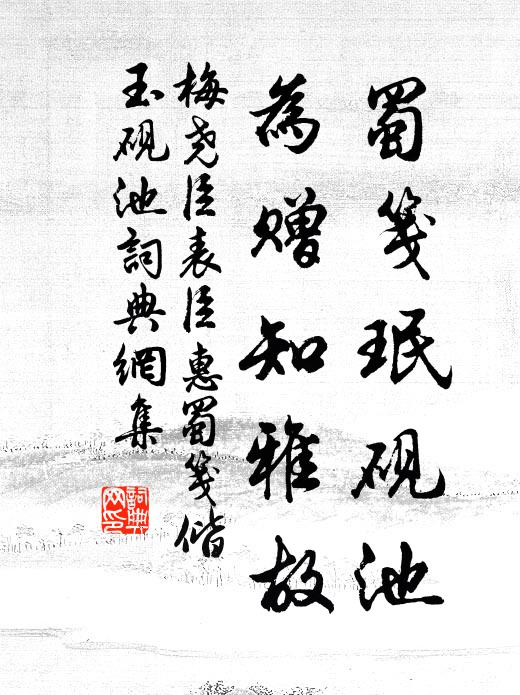 蜀箋珉硯池
為贈知雅故
梅尧臣表臣惠蜀箋偕
玉硯池詞典網集
詞典
网印